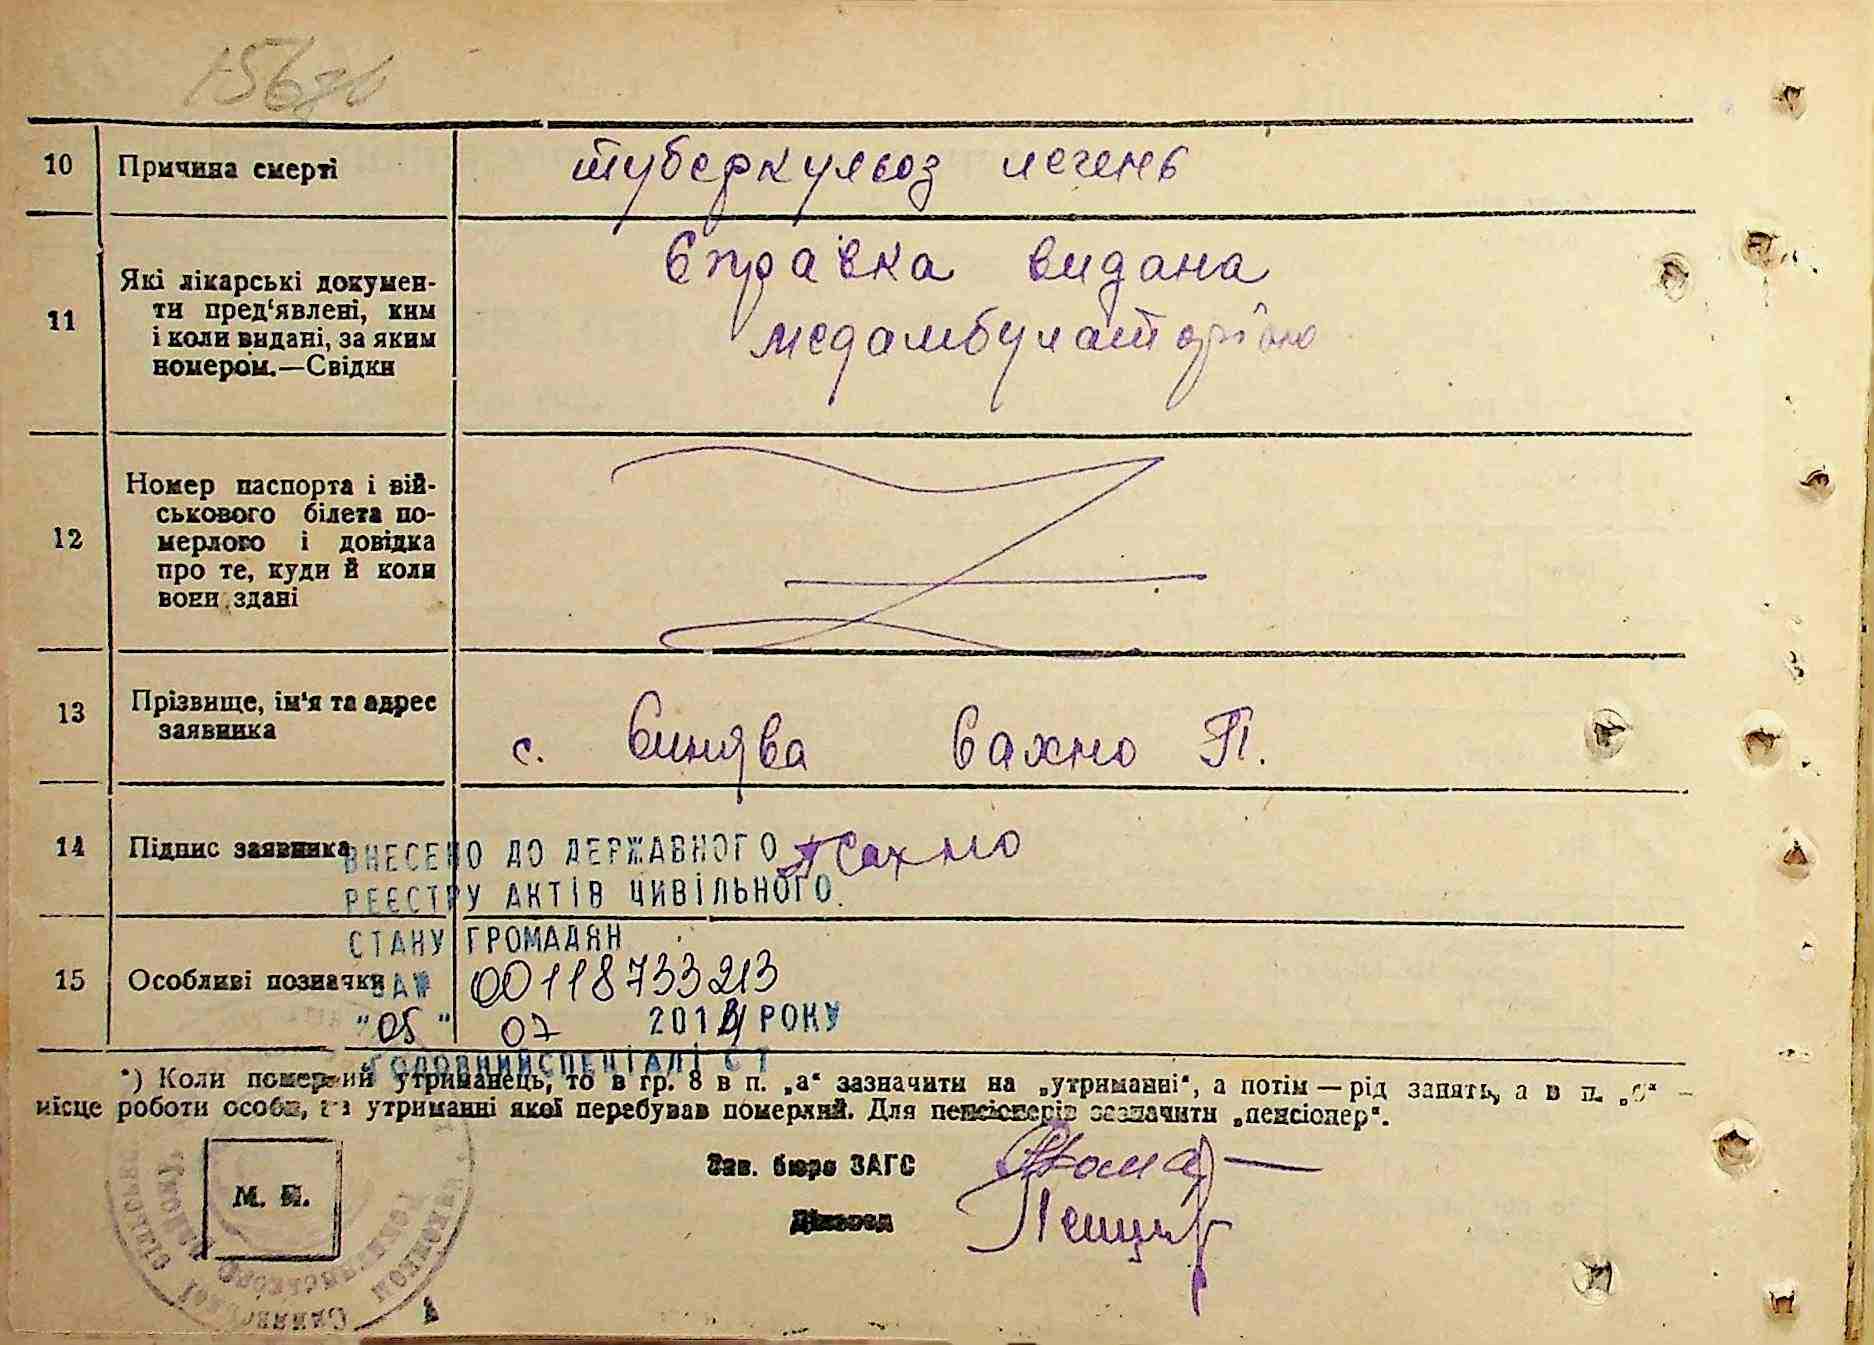 156зв
10 Причина смерті туберкульоз легень
11 Які лікарські докумен-
ти пред‘явлені, ким
і коли видані, за яким
номером.—Свідки
Справка видана
медамбулаторією
12 Номер паспорта і вій-
ськового білета по-
мерлого і довідка
про те, куди й коли
вони здані
13 Прізвище, ім‘я та адрес
заявника
с. Синява Сахно П.
14 Підпис заявника Сахно
ВНЕСЕНО ДО ДЕРЖАВНОГО
РЕЄСТРУ АКТІВ ЦИВІЛЬНОГО
СТАНУ ГРОМАДЯН
15 Особливі позначки
ЗА № 00118733213
"05" 07 РОКУ
ГОЛОВНИЙ СПЕЦІАЛІСТ
*) Коли померлий утриманець, то в гр. 8 в п. „а“ зазначити на „утриманні“, а потім — рід занять, а в п. „б“ –
місце роботи особи, на утриманні якої перебував померлий. Для пенсіонерів зазначити „пенсіонер“.
Зав. бюро ЗАГС
Діловод
М. П.